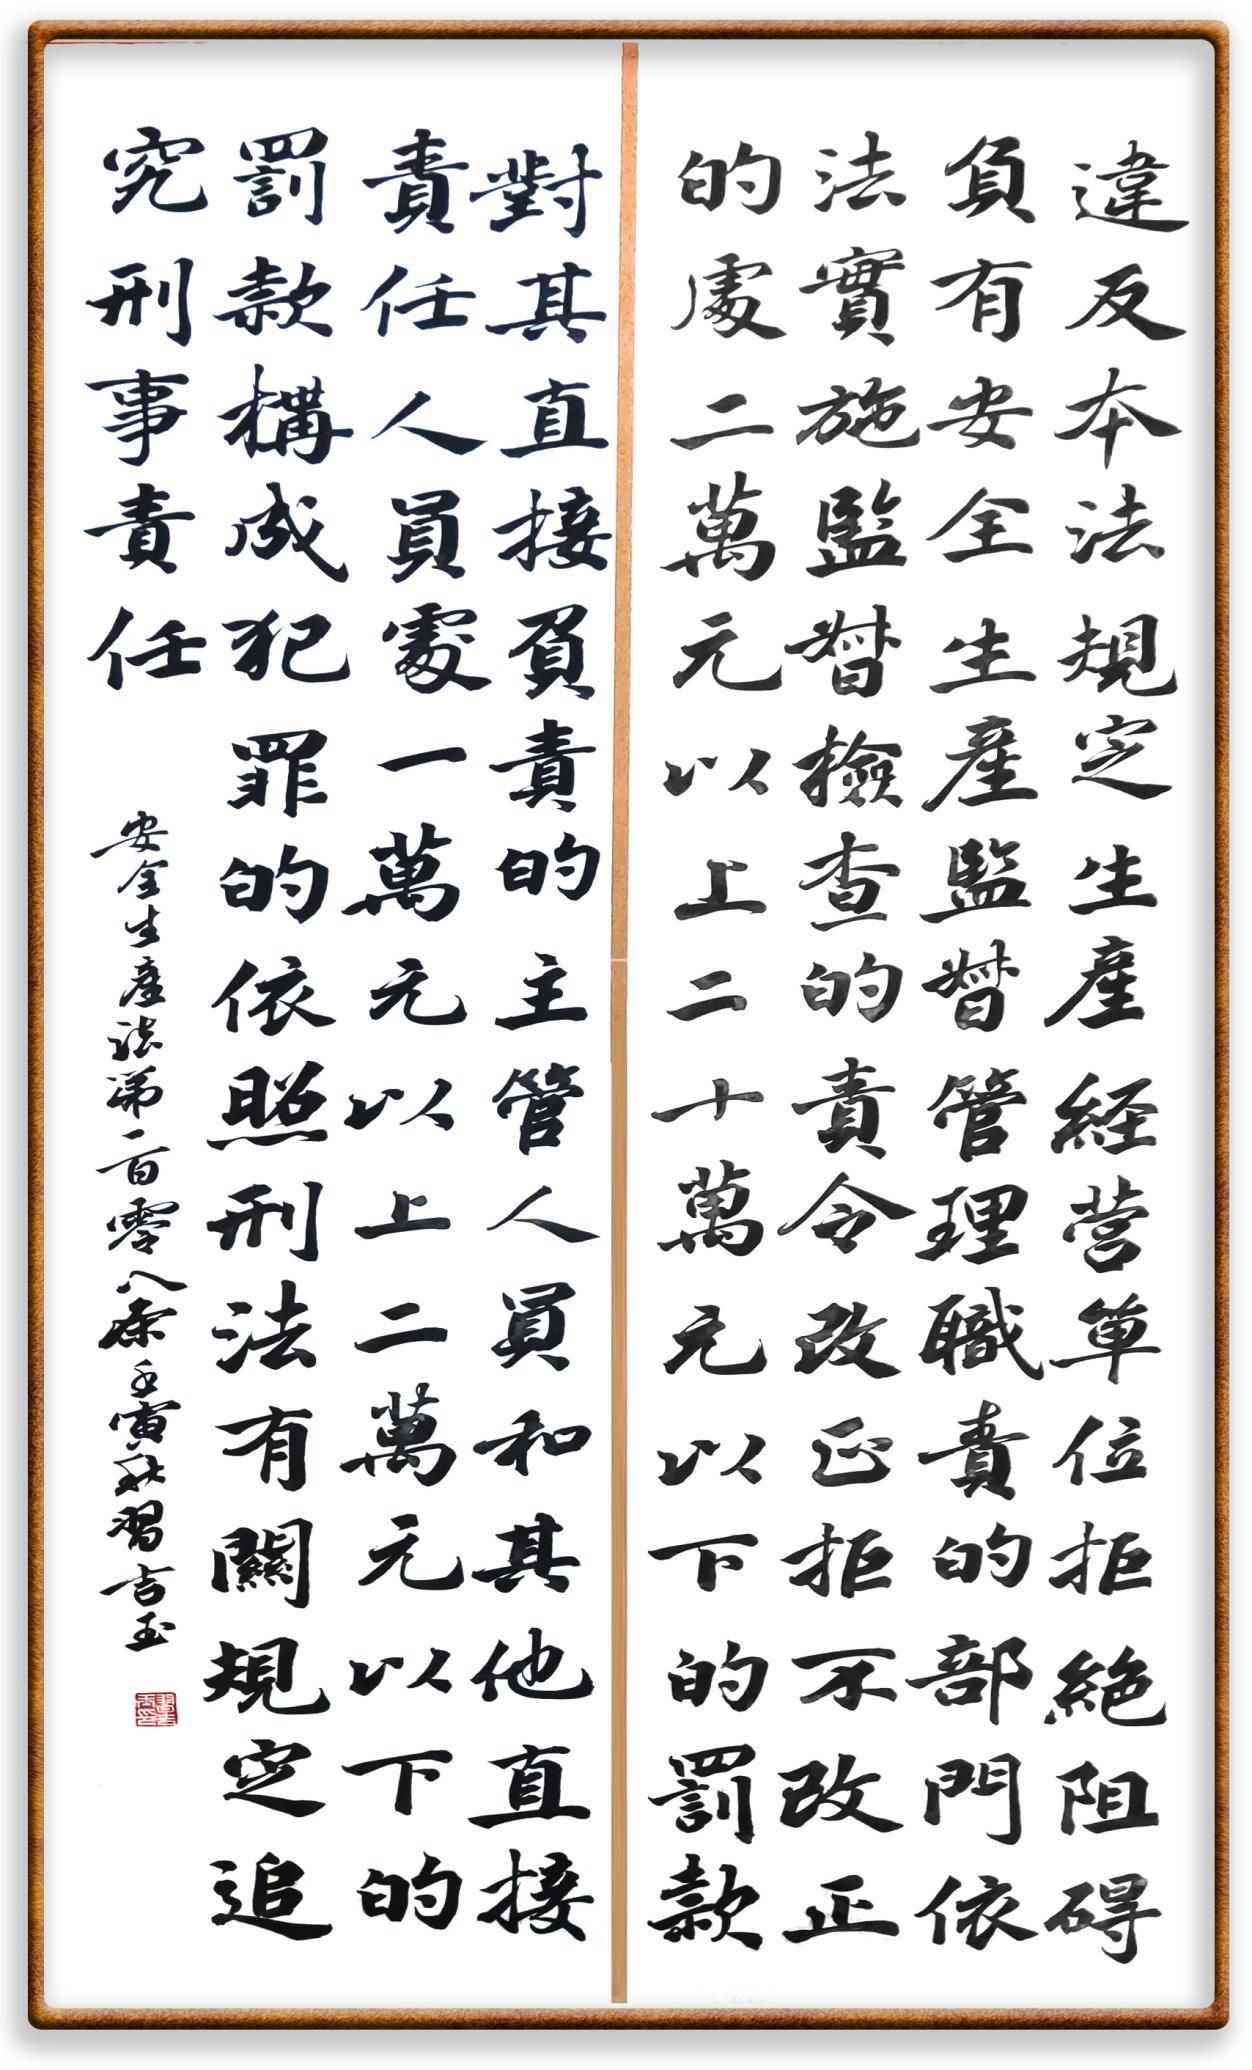 違反本法規定生產経营單位拒絶阻碍
負有安全生產監督管理職責的部門依
法實施監督撿查的責令改正拒不改正
的處二萬元以上二十萬元以下的罰款
對其直接負責的主管人員和其他直接
責任人員處一萬元以上二萬元以下的
罰款構成犯罪的依照刑法有關規定追
究刑事責任
安全生產法第一百零八条壬寅秋習吉玉